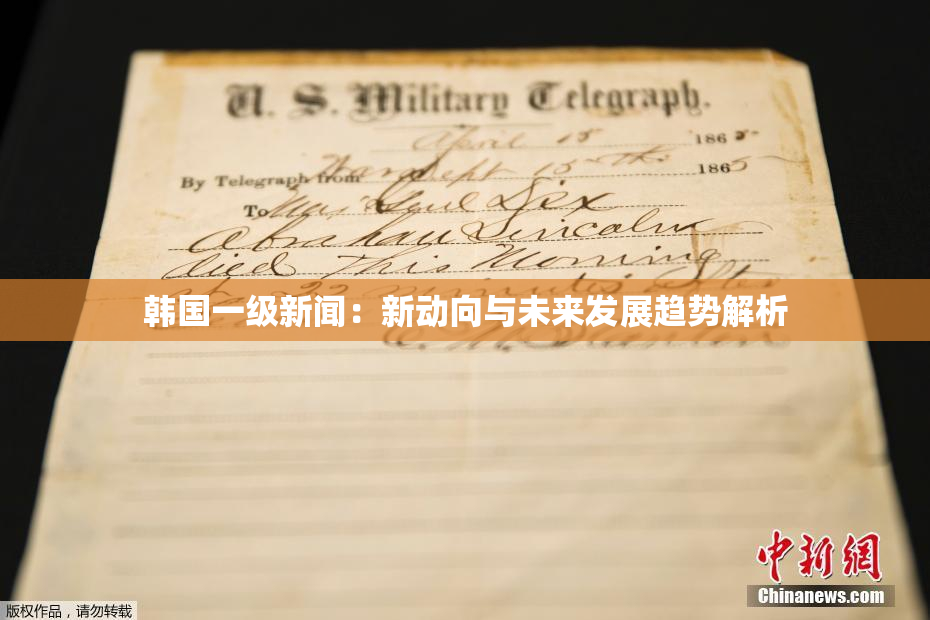 U. S. Military Telegraph.
April 15 1865
By Telegraph from War Dept 15th 1865
To Maj Genl Dix
Abraham Lincoln
died This Morning
韩国一级新闻：新动向与未来发展趋势解析
22 minutes after
中新網
Chinanews.com
版权作品，请勿转载